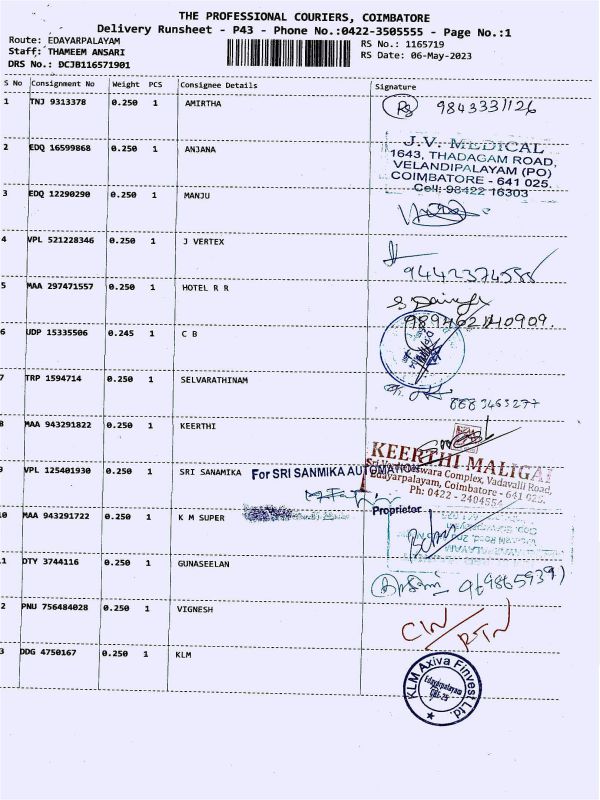 THE PROFESSIONAL COURIERS, COIMBATORE
Delivery Runsheet - P43 - Phone No.:0422-3505555 - Page No.:1
Route: EDAYARPALAYAM
RS No.: 1165719
Staff: THAMEEM ANSARI
RS Date: 06-May-2023
DRS No.: DCJB116571901
S No Consignment No Weight PCS Consignee Details Signature
1 TNJ 9313378 0.250 1 AMIRTHA
9843331126
2 EDQ 16599868 0.250 1 ANJANA
J.V. MEDICAL
1643, THADAGAM ROAD,
VELANDIPALAYAM (PO)
COIMBATORE - 641 025.
Cell: 98422 16303
3 EDQ 12290290 0.250 1 MANJU
4 VPL 521228346 0.250 1 J VERTEX
5 MAA 297471557 0.250 1 HOTEL R R
6 UDP 15335506 0.245 1 C B
7 TRP 1594714 0.250 1 SELVARATHINAM
8 MAA 943291822 0.250 1 KEERTHI
KEERTHI MALIGAI
Complex, Vadavalli Road,
Edayarpalayam, Coimbatore - 641 025.
Ph: 0422 - 2404554
9 VPL 125401930 0.250 1 SRI SANAMIKA
For SRI SANMIKA AUTOMATION
Proprietor
10 MAA 943291722 0.250 1 K M SUPER
11 DTY 3744116 0.250 1 GUNASEELAN
12 PNU 756484028 0.250 1 VIGNESH
CIN/RTN
13 DDG 4750167 0.250 1 KLM
KLM Axiva Finvest Ltd.
Edayarpalayam